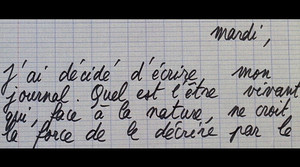 mardi,
j'ai décidé d'écrire mon
journal. Quel est l'être vivant
qui, face à la nature, ne croit
la force de le décrire par le